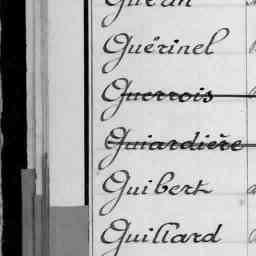 Guérin
Guérinel
Guerrois
Guiardière
Guibert
Guillard